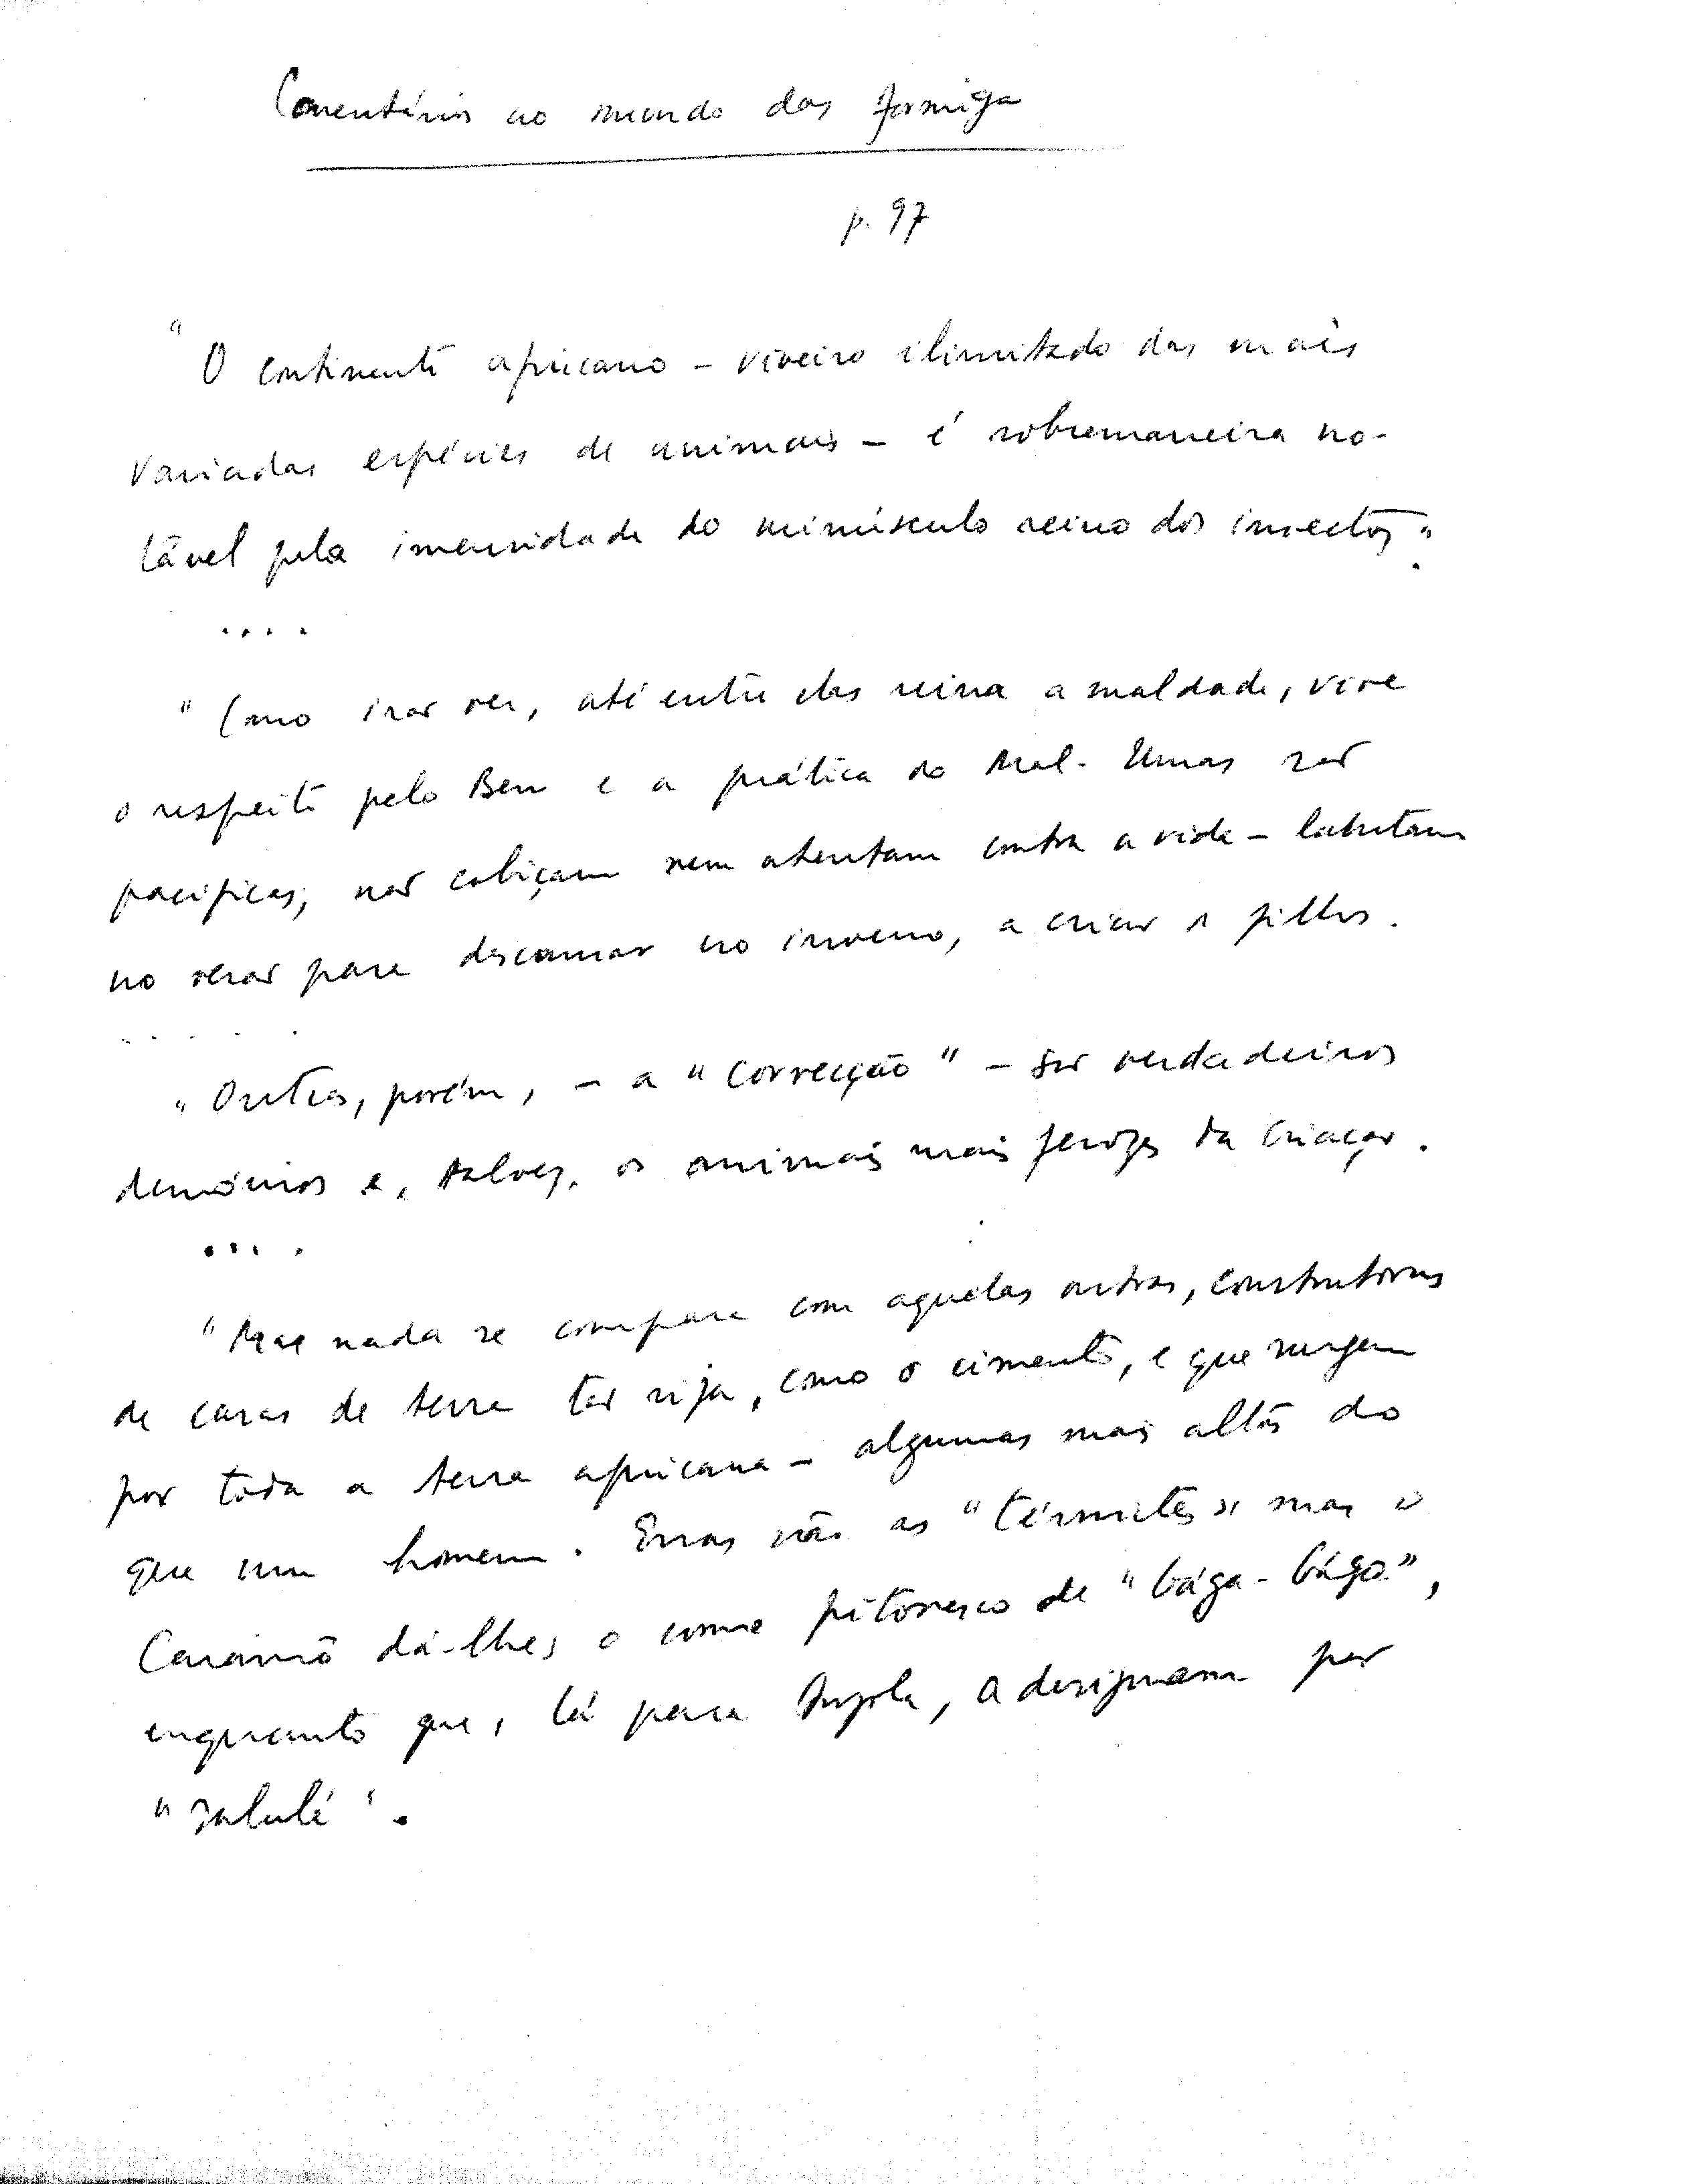 Comentários ao mundo das formiga
p. 97
"O continente africano – viveiro ilimitado das mais
variadas espécies de animais – é sobremaneira no-
tável pela imensidade do minúsculo reino dos insectos".
....
"Como irão ver, até entre elas reina a maldade, vive
o respeito pelo Bem e a prática do Mal. Umas são
pacíficas, não cobiçam nem atentam contra a vida – labutam
no verão para descansar no inverno, a criar os filhos.
.....
"Outras, porém, – a "Correcção" – são verdadeiros
demónios e, talvez, os animais mais ferozes da Criação.
....
"Mas nada se compara com aquelas outras, construtoras
de casas de terra tão rija, como o cimento, e que surgem
por toda a terra africana – algumas mais altas do
que um homem. Essas são as "térmites", mas o
dá-lhes o nome pitoresco de "bága-bága",
enquanto que, lá para Angola, a designam por
"salulé".